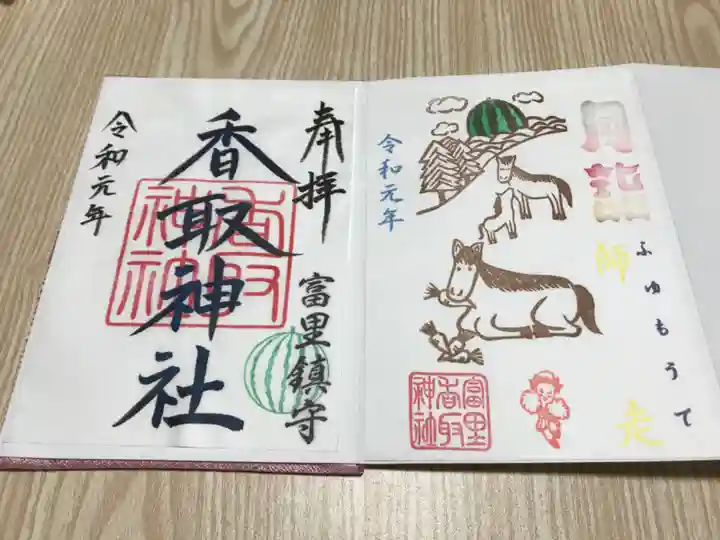 奉拝
富里鎮守
香取神社
香取
神社
令和元年
月詣
ふゆもうて
師走
令和元年
富里
香取
神社